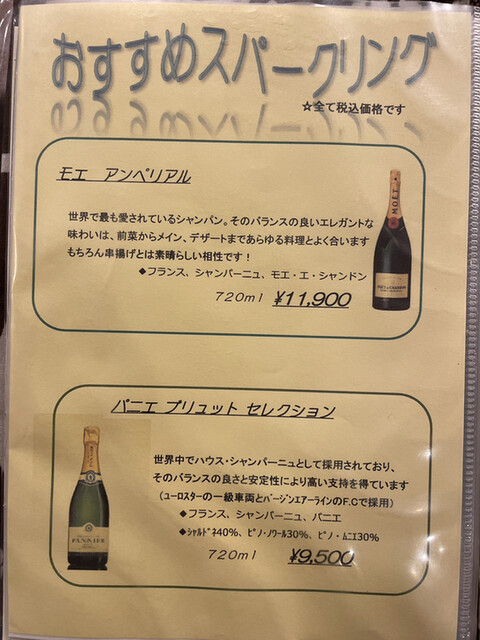 おすすめスパークリング
☆全て税込価格です
モエ　アンペリアル
世界で最も愛されているシャンパン。そのバランスの良いエレガントな
味わいは、前菜からメイン、デザートまであらゆる料理とよく合います
もちろん串揚げとは素晴らしい相性です！
◆フランス、シャンパーニュ、モエ・エ・シャンドン
720ml ¥11,900
MOËT
パニエ ブリュット セレクション
世界中でハウス・シャンパーニュとして採用されており、
そのバランスの良さと安定性により高い支持を得ています
（ユーロスターの一級車両とバージンエアーラインのF.Cで採用）
◆フランス、シャンパーニュ、パニエ
◆シャルドネ40%、ピノ・ノワール30%、ピノ・ムニエ30%
720ml ¥9,500
PANNIER